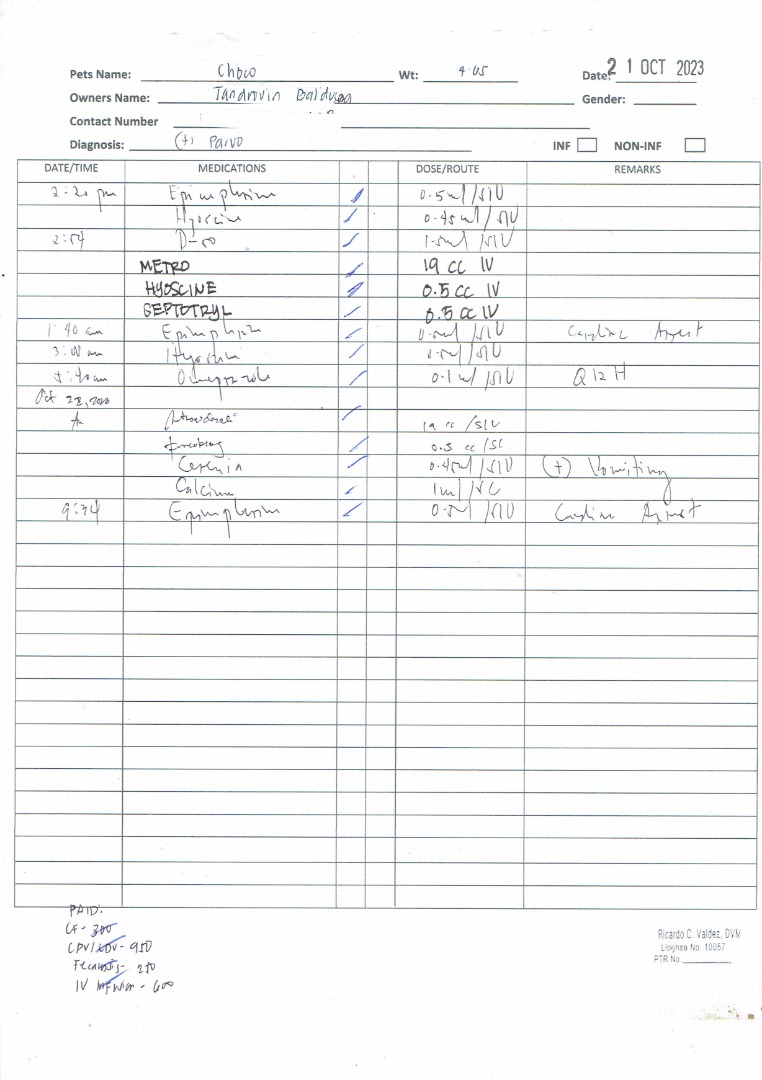 Pets Name: Choco Wt: 4.05 Date: 21 OCT 2023
Owners Name: Gender:
Contact Number
Diagnosis: (+) Parvo INF NON-INF
DATE/TIME MEDICATIONS DOSE/ROUTE REMARKS
2:20 pm Epinephrine 0.5ml/SIV
Hyoscine 0.45ml/SIV
2:54 D-50 1.5ml/SIV
METRO 19 cc IV
HYOSCINE 0.5 cc IV
SEPTOTRYL 0.5 cc IV
1:40 am Epinephrine /SIV Cardiac Arrest
3:00 am Hyoscine /SIV
Omeprazole 0.1ml/SIV Q12H
Oct 22,
19 cc /SIV
0.5 cc /SC
Cerenia 0.45ml/SIV (+) Vomiting
Calcium 1ml/
9:34 Epinephrine 0.5ml/SIV Cardiac Arrest
PAID:
CF - 300
CPV/CDV - 950
Fecalysis - 250
IV Infusion - 600
Ricardo C. Valdez, DVM
License No. 10057
PTR No.